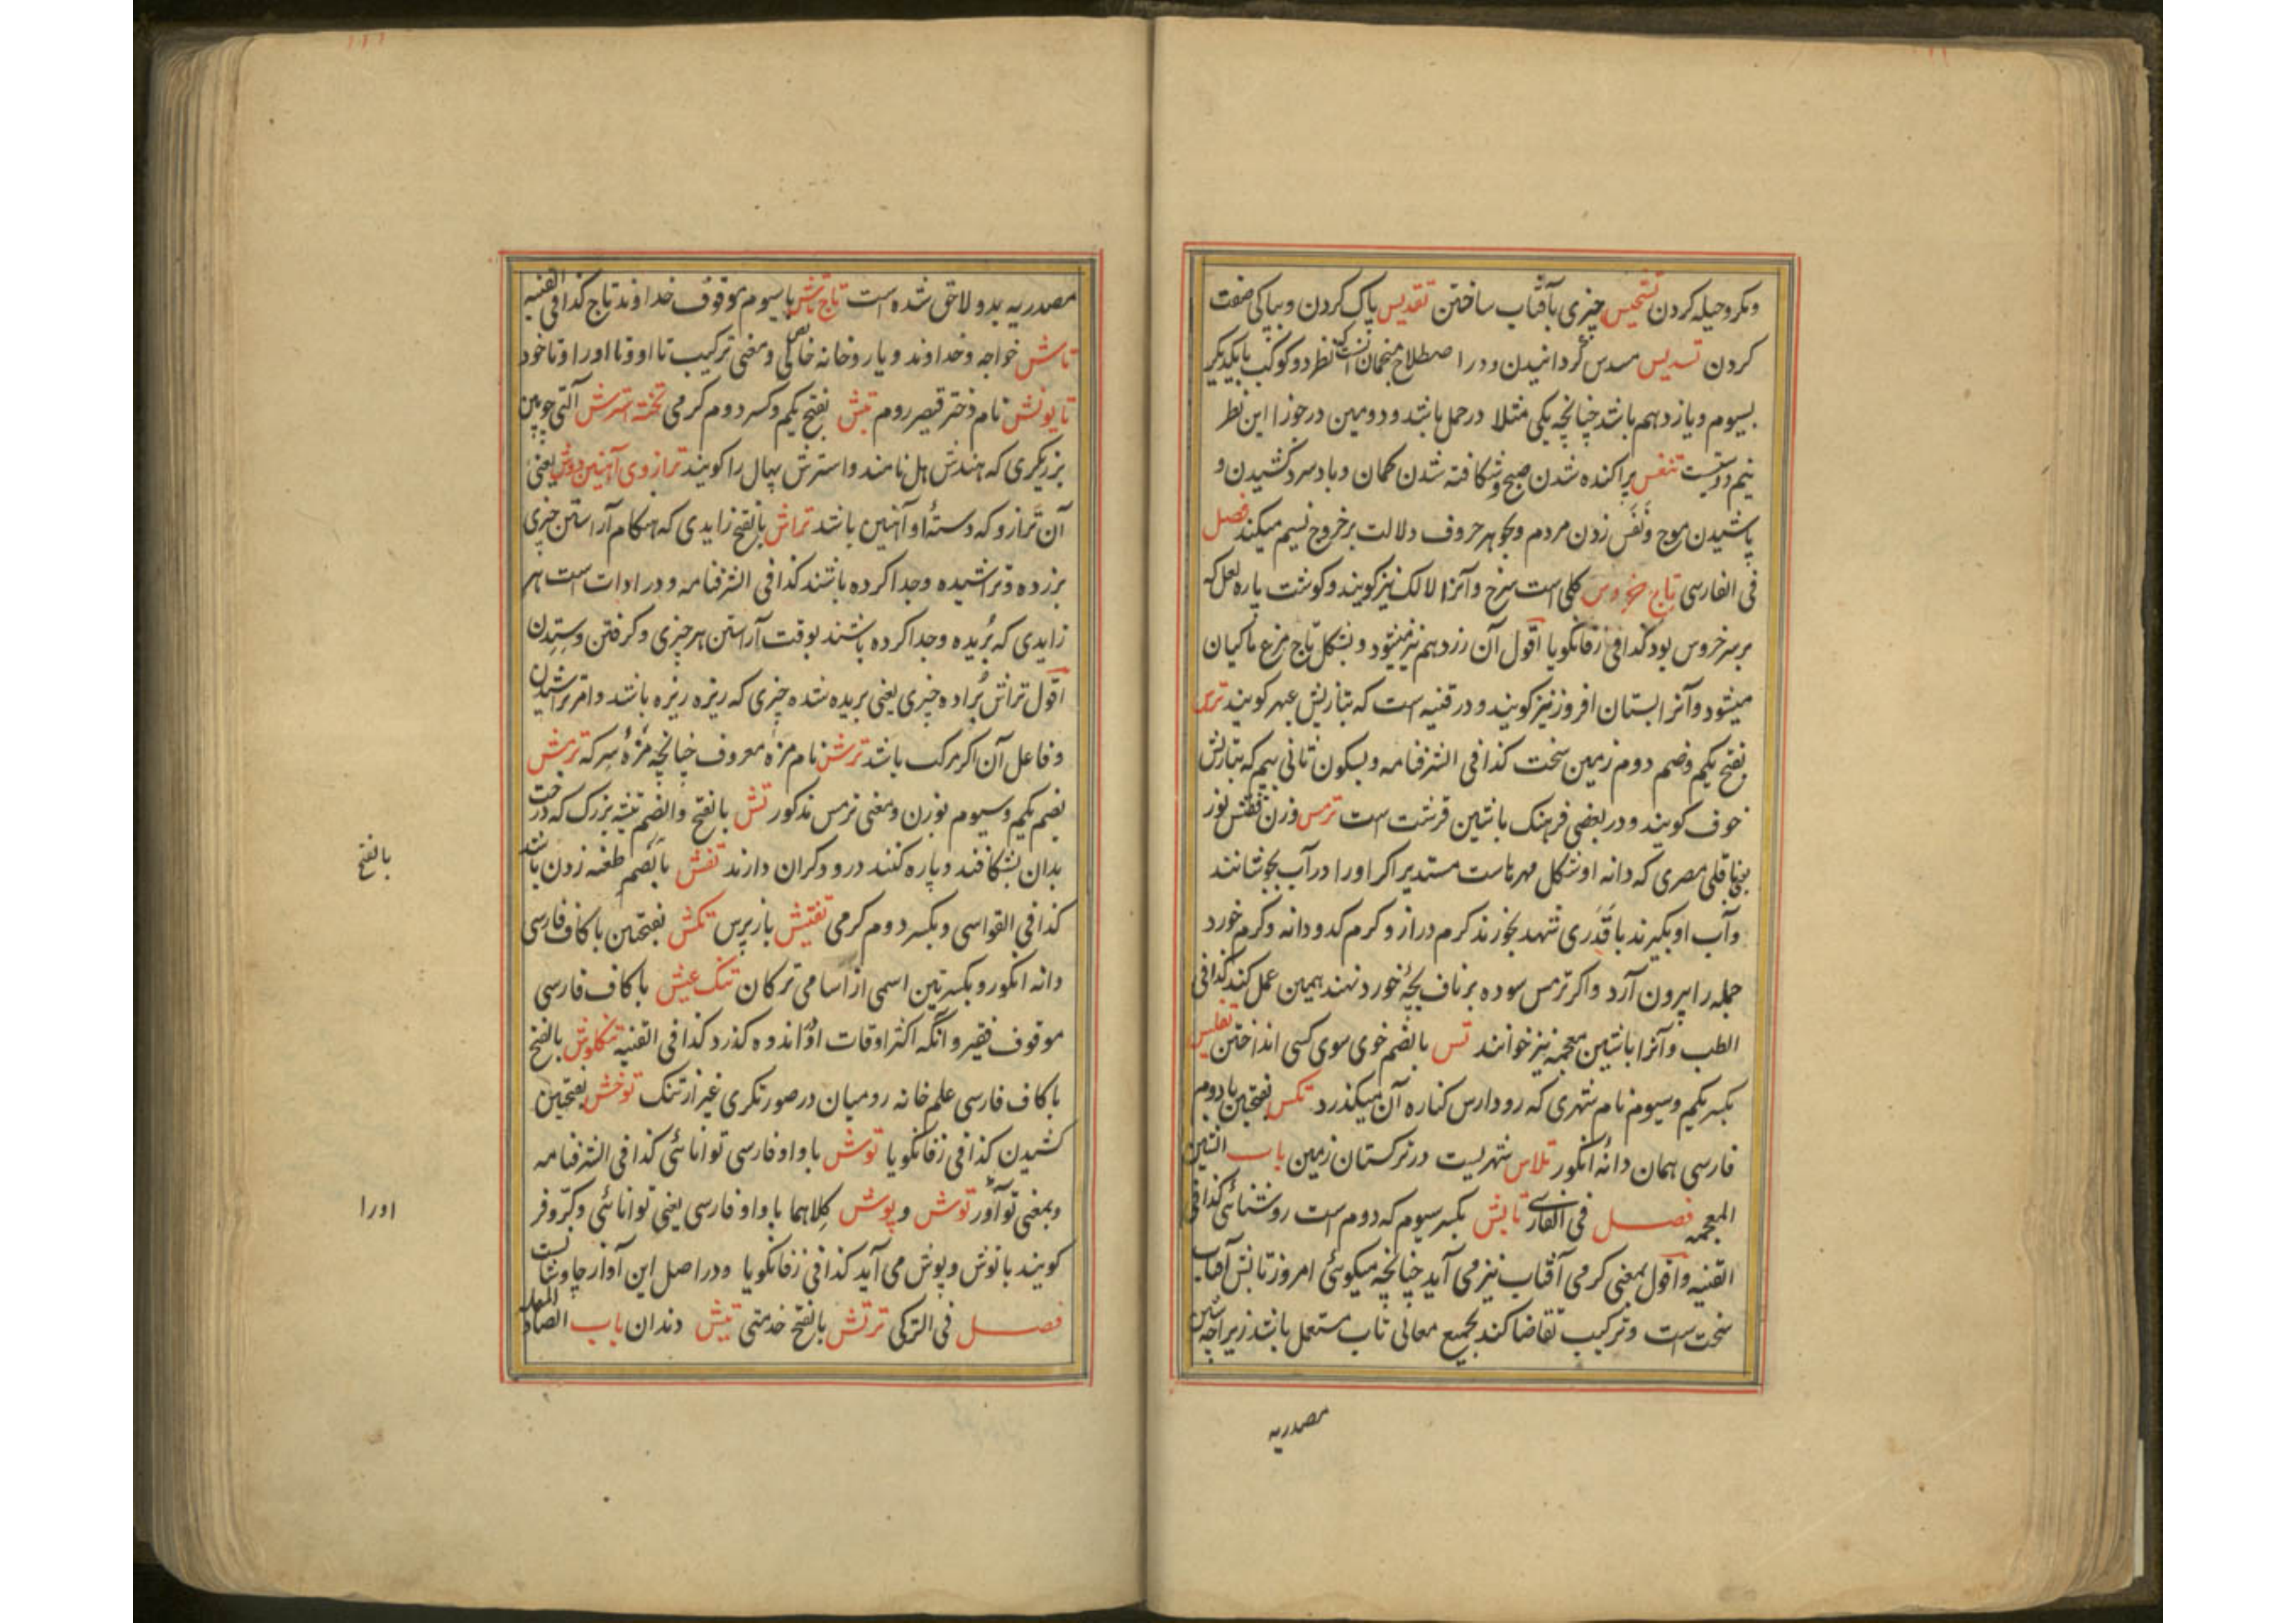 ومکر و حیله کردن تشمیس چیزی بآفتاب ساختن تقدیس پاک کردن و بپاکی صفت
کردن تسدیس مسدس گردانیدن و در اصطلاح منجمان آنست که نظر دو کوکب بایکدیگر
بسیوم و یازدهم باشد چنانچه یکی مثلا در حمل باشد و دویمین در جوزا این نظر
نیم دوستیست تنفس پراکنده شدن صبح و شکافته شدن کمان و باد سرد کشیدن و
پاشیدن موج و نفس زدن مردم و بجوهر حروف دلالت بر خروج نسیم میکند فصل
فی الفارسی تاج خروس گلی است سرخ و آنرا لالک نیز گویند و گوشت پاره لعل که
بر سر خروس بود کذا فی زفانگویا اقول آن زرد هم نیز میشود و بشکل تاج مرغ ماکیان
میشود و آنرا بستان افروز نیز گویند و در قنیه است که بتازیش عبهر گویند ترس
بفتح یکم و ضم دوم زمین سخت کذا فی الشرفنامه و بسکون ثانی بیم که بتازیش
خوف گویند و در بعضی فرهنک باشین قرشت است ترمس وزن ققنس نور
یعنی باقلی مصری که دانه او شکل مهره است مستدیر اگر او را در آب بجوشانند
و آب او بگیرند با قدری شهد بخورند کرم دراز و کرم کدو دانه و کرم خورد
جمله را بیرون آرد و اگر ترمس سوده بر ناف بچهٔ خورد نهند همین عمل کند کذا فی
الطب و آنرا باشین معجمه نیز خوانند تس بالضم خوی سوی کسی انداختن تفلیس
بکسر یکم و سیوم نام شهری که رود ارس کناره آن میگذرد تکس بفتحتین با دوم
فارسی همان دانهٔ انگور تلاس شهریست در ترکستان زمین باب الشین
المعجمه فصل فی الفارسی تابش بکسر سیوم که دوم است روشنائی کذا فی
القنیه و اقول بمعنی گرمی آفتاب نیز می آید چنانچه میگوئی امروز تابش آفتاب
سخت است و ترکیب تقاضا کند بجمیع معانی تاب مستعمل باشد زیراچه شین
مصدریه
مصدریه بدو لاحق شده است تاج تاش باسیوم موقوف خداوند تاج کذا فی القنیه
تاش خواجه و خداوند و یار و خانه و معنی ترکیب تا او و تا او را و تا خود
نام دختر قیصر روم تبش بفتح یکم و کسر دوم گرمی تخته استرش آلتی چوبین
برزیگری که هندش هل نامند و استرش بهال را گویند ترازوی آهنین دوش یعنی
آن ترازو که دستهٔ او آهنین باشد تراش بالفتح زایدی که هنکام آراستن چیزی
بزرده و تراشیده و جدا کرده باشند کذا فی الشرفنامه و در ادات است هر
زایدی که بریده و جدا کرده باشند بوقت آراستن هر چیزی و گرفتن و ستدن
اقول تراش براده چیزی یعنی بریده شده چیزی که ریزه ریزه باشد و امر تراشیدن
و فاعل آن اگر مرکب باشد ترش نام مزه معروف چنانچه مزهٔ سرکه ترمش
بضم یکم و سیوم بوزن و معنی ترمس مذکور تش بالفتح والضم تیشه بزرک که درخت
بدان بشکافند و پاره کنند درودگران دارند تفش بالضم طعنه زدن باشد
کذا فی القواسی و بکسر دوم گرمی تفتیش بازپرس تکش بفتحتین باکاف فارسی
دانه انگور و بکسرتین اسمی از اسامی ترکان تنک عیش باکاف فارسی
موقوف فقیر و آنکه اکثر اوقات او در اندوه گذرد کذا فی القنیه تنکلوش بالفتح
باکاف فارسی علم خانه رومیان در صورتگری غیر ارتنک توخش بفتحتین
کشیدن کذا فی زفانگویا توش باواو فارسی توانائی کذا فی الشرفنامه
و بمعنی تن آور توش و پوش کلاهما باواو فارسی یعنی توانائی و کر و فر
گویند باتوش و پوش می آید کذا فی زفانگویا و در اصل این آواز چاوشانست
فصل فی الترکی ترتش بالفتح خدمتی تیش دندان باب الصاد المهمله
بالفتح
اورا